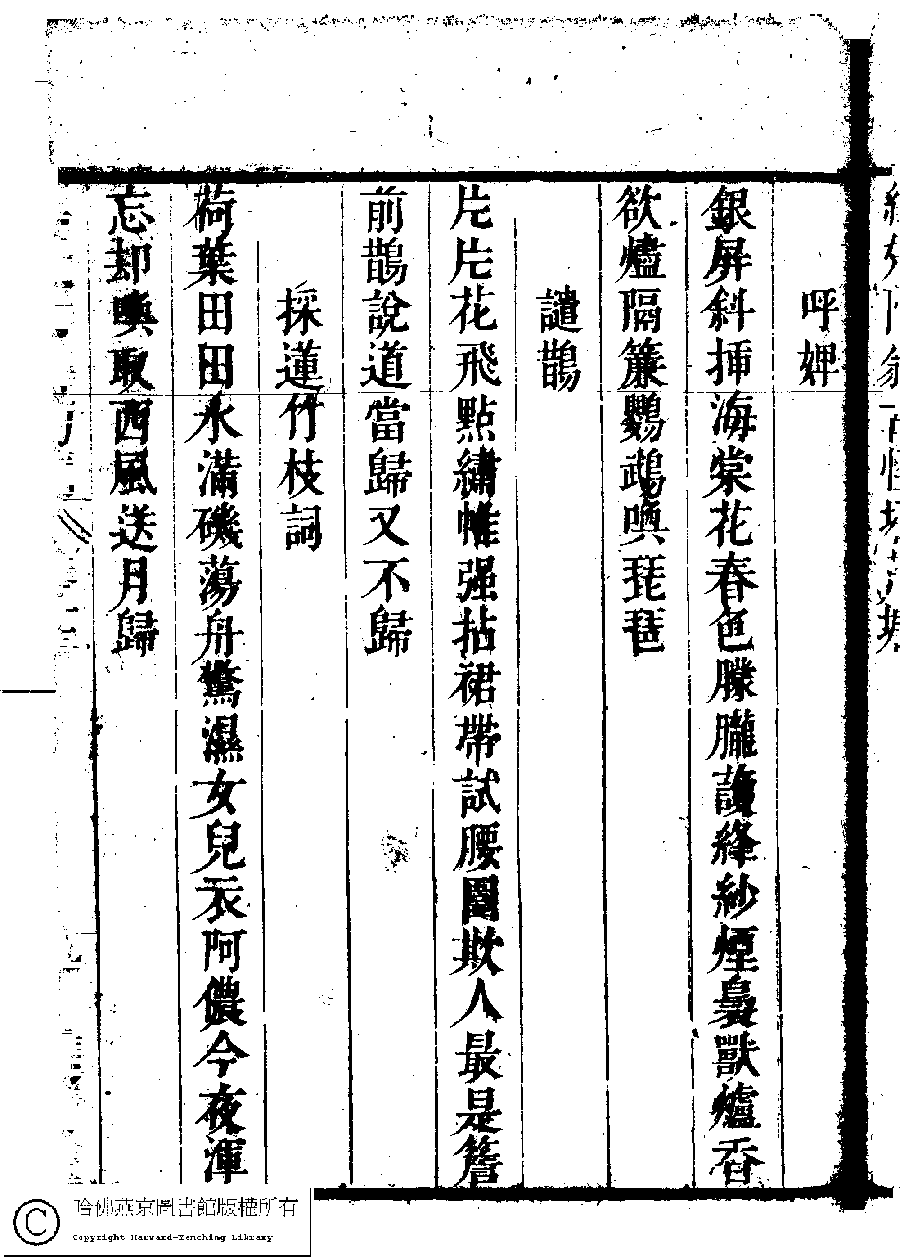 呼婢
銀屏斜揷海棠花春色朦朧護絳紗煙裊獸爐香
欲燼隔簾鸚鵡喚琵琶
譴鵲
片片花飛點繡帷强拈裙帶試腰圍欺人最是簷
前鵲說道當歸又不歸
採蓮竹枝詞
荷葉田田水滿磯蕩舟驚濕女兒衣阿儂今夜渾
忘却喚取西風送月歸
哈佛燕京圖書館版權所有
Copyright Harvard-Yenching Library